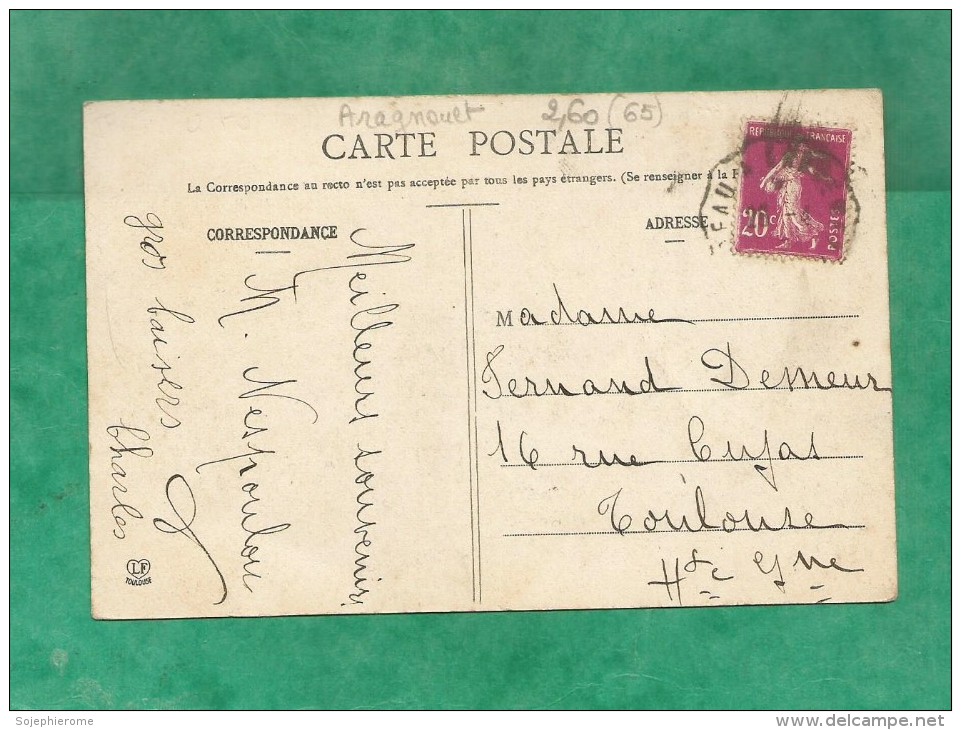 Aragnouet 2,60 (65)
CARTE POSTALE
La Correspondance au recto n'est pas acceptée par tous les pays étrangers. (Se renseigner à la
CORRESPONDANCE
ADRESSE
REPUBLIQUE FRANCAISE
20c
POSTES
Meilleurs souvenirs
Nespoulous
gros baisers
Charles
Madame
Fernand Demeur
16 rue Cujas
Toulouse
Hte Gne
LF
TOULOUSE
Sojephierome
delcampe.net